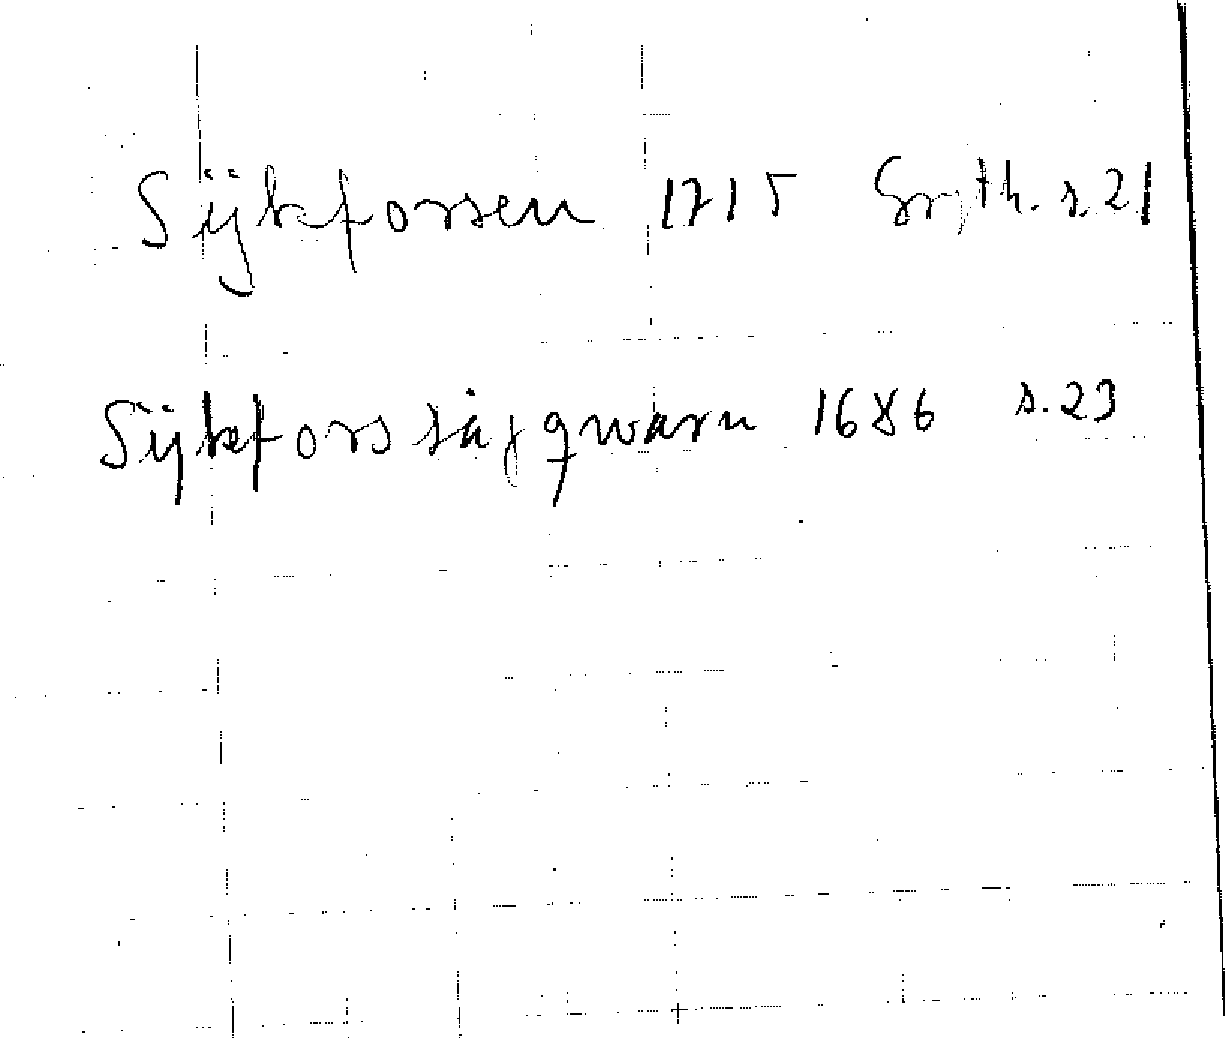 Sijkforsen 1715 s. 21
Sijkforssågqwarn 1686 s. 23